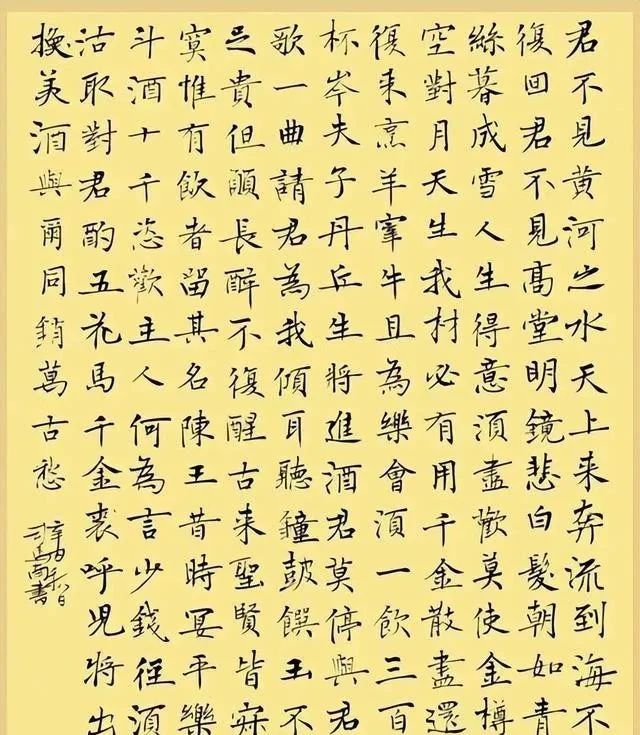 君不見黃河之水天上来奔流到海不
復回君不見高堂明鏡悲白髮朝如青
絲暮成雪人生得意須盡歡莫使金樽
空對月天生我材必有用千金散盡還
復来烹羊宰牛且為樂會須一飲三百
杯岑夫子丹丘生將進酒君莫停與君
歌一曲請君為我傾耳聽鐘鼓饌玉不
足貴但願長醉不復醒古来聖賢皆寂
寞惟有飲者留其名陳王昔時宴平樂
斗酒十千恣歡主人何為言少錢径須
沽取對君酌五花馬千金裘呼児將出
換美酒與爾同銷萬古愁